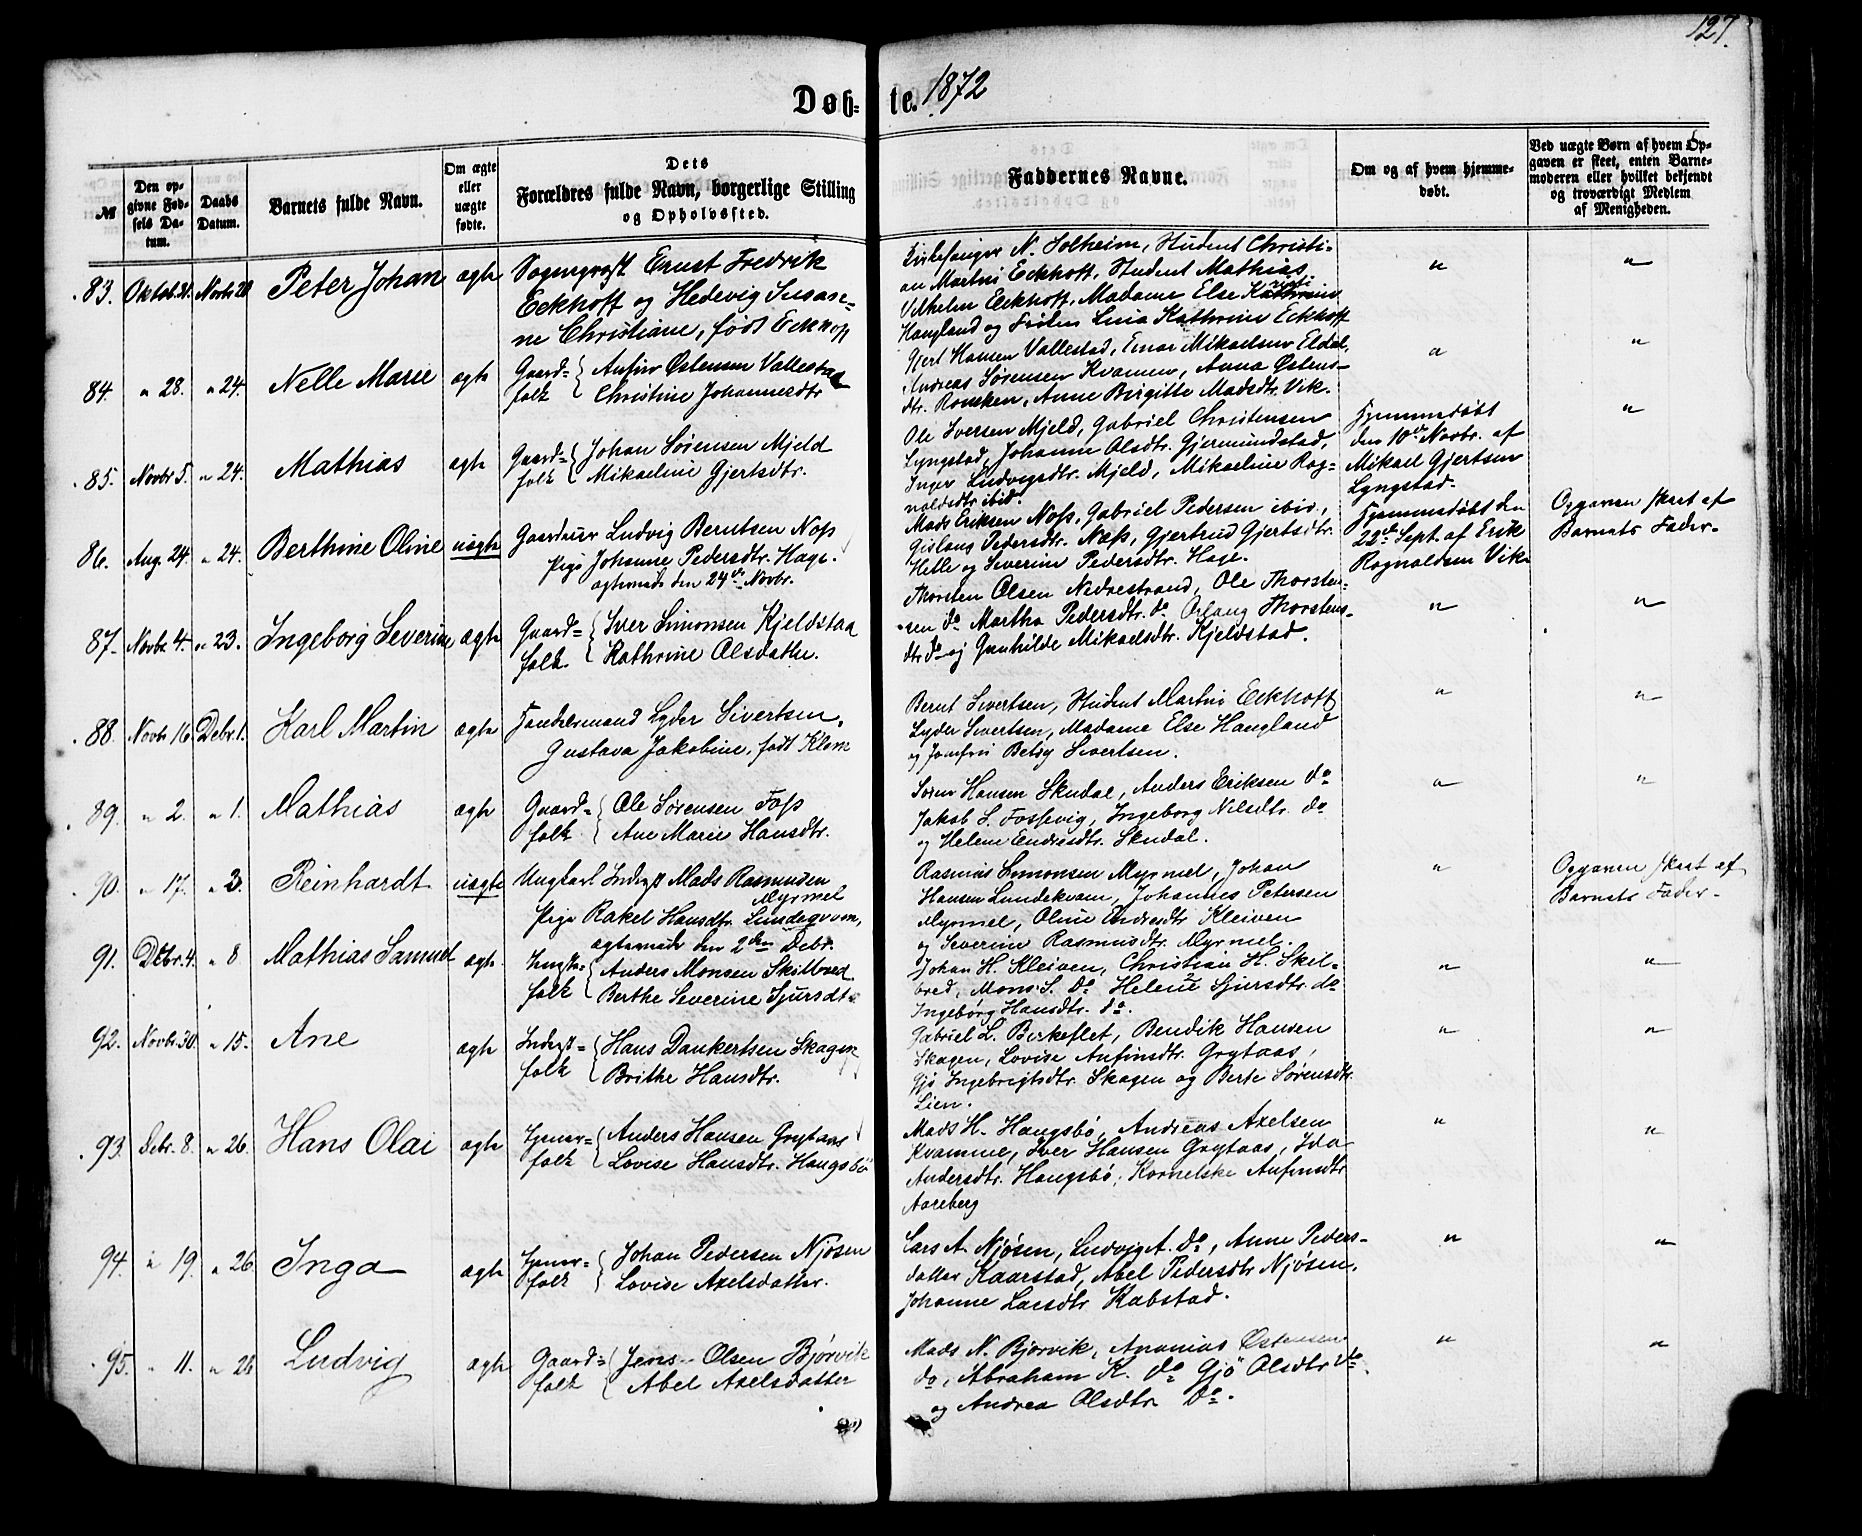 127.
Døb-
te. 1872
№
Den op-
givne Fød-
sels Da-
tum.
Daabs
Datum.
Barnets fulde Navn.
Om ægte
eller
uægte
fødte.
Dets
Forældres fulde Navn, borgerlige Stilling
og Opholdssted.
Faddernes Navne.
Om og af hvem hjemme-
døbt.
Ved uægte Børn af hvem Op-
gaven er skeet, enten Barne-
moderen eller hvilket bekjendt
og troværdigt Medlem
af Menigheden.
83. Oktob. 31. Novbr. 20 Peter Johan ægte
Sogneprest Ernst Fredrik
Eckhoff og Hedevig Susan-
ne Christiane, født Eckhoff
Kirkesanger N. Solheim, Student Christi-
an Martin Eckhoff, Student Mathias
Vilhelm Eckhoff, Madame Else
Haugland og Frøken Lina Kathrine Eckhoff
" "
84. " 28. " 24. Nelle Marie ægte
Gaard= Anfin Østensen Vallestad
folk Christine Johannesdtr
Gjert Hansen Vallestad, Einar Mikaelsen Eldal,
Andreas Sørensen Kvamen, Anna Østens-
dtr. Roneken, Anne Birgitte Madsdtr. Vik.
" "
85. Novbr 5. " 24. Mathias ægte
Gaard= Johan Sørensen Mjeld
folk Mikaeline Gjertsdtr.
Ole Iversen Mjeld, Gabriel Christensen
Lyngstad, Johanne Olsdtr. Gjermundstad,
Inger Ludvigsdtr. Mjeld, Mikaeline Rag-
valdsdtr ibid.
Hjemmedøbt
den 10de Novbr. af
Mikael Gjertsen
Lyngstad.
"
86. Aug. 24. " 24. Berthine Oline uægte
Gaardmr Ludvig Berntsen Næss
Pige Johanne Pedersdtr. Hage.
ægteviede den 24de Novbr.
Mads Eriksen Næss, Gabriel Pedersen ibid.,
Gislaug Pedersdtr. Næss, Gjertrud Gjertsdtr.
Helle og Severine Pedersdtr. Hage.
Hjemmedøbt den
22de Sept. af Erik
Ragnaldsen Vik.
Opgaven skeet af
Barnets Fader.
87. Novbr. 4. " 23. Ingeborg Severine ægte
Gaard= Iver Simonsen Kjeldstad
folk Kathrine Olsdatter.
Thorsten Olsen Nedrestrand, Ole Thorsten-
sen do Martha Pedersdtr. do Thorstens-
dtr do og Gunhilde Mikaelsdtr. Kjeldstad.
" "
88. Novbr 16 Debr. 1. Karl Martin ægte
Handelsmand Lyder Sivertsen,
Gustava Jakobine, født Klem
Bernt Sivertsen, Student Martin Eckhoff
Lyder Sivertsen, Madame Else Haugland
og Jomfru Betsy Sivertsen.
" "
89. " 2. " 1. Mathias ægte
Gaard= Ole Sørensen Foss
folk Ane Marie Hansdtr.
Søren Hansen Skudal, Anders Eriksen do
Jakob S. Fossevig, Ingeborg Nilsdtr. do
og Helene Endresdtr. Skudal.
" "
90. " 17. " 3. Reinhardt uægte
Ungkarl Inderst Mads Rasmussen
Myrmel
Pige Rakel Hansdtr. Lundeqvam,
ægteviede den 2den Debr.
Rasmus Simonsen Myrmel, Johan
Hansen Lundekvam, Johannes Petersen
Myrmel, Oline Andersdtr Kleiven
og Severine Rasmusdtr. Myrmel.
"
Opgaven skeet af
Barnets Fader.
91. Debr. 4. " 8 Mathias Samuel ægte
Anders Monsen Skilbred
folk Berthe Severine Sjursdtr
Johan H. Kleiven, Christian H. Skil-
bred, Mons S. do Helene Sjursdtr. do
Ingebørg Hansdtr. do.
" "
92. Novbr 30. " 15. Ane ægte
Inderst= Hans Dankertsen Skagen
folk Brithe Hansdtr.
Gabriel L. Birkeflet, Bendik Hansen
Skagen, Lovise Anfinsdtr. Grytaas,
Gjø Ingebrigtsdtr. Skagen og Berte Sørensdtr.
Lien.
" "
93. Debr. 8. " 26. Hans Olai ægte
Anders Hansen Grytaas
folk Lovise Hansdtr. Haugsbø
Mads H. Haugsbø, Andreas Axelsen
Kvamme, Iver Hansen Grytaas, Ida
Andersdtr. Haugsbø, Kornelske Anfinsdtr
Aareberg
" "
94. " 19. " 26 Inga ægte
Johan Pedersen Njøsen
folk Lovise Axelsdatter.
Lars A. Njøsen, Ludvig A. do, Anne Peders-
datter Kaarstad, Abel Pedersdtr Njøsen,
Johanne Larsdtr Kabstad.
" "
95. " 11. " 26 Ludvig ægte
Gaard= Jens Olsen Bjørvik
folk Abel Axelsdatter
Mads N. Bjørvik, Ananias Østensen
do, Abraham K. do Gjø Olsdtr do
og Andrea Olsdtr. do.
" "